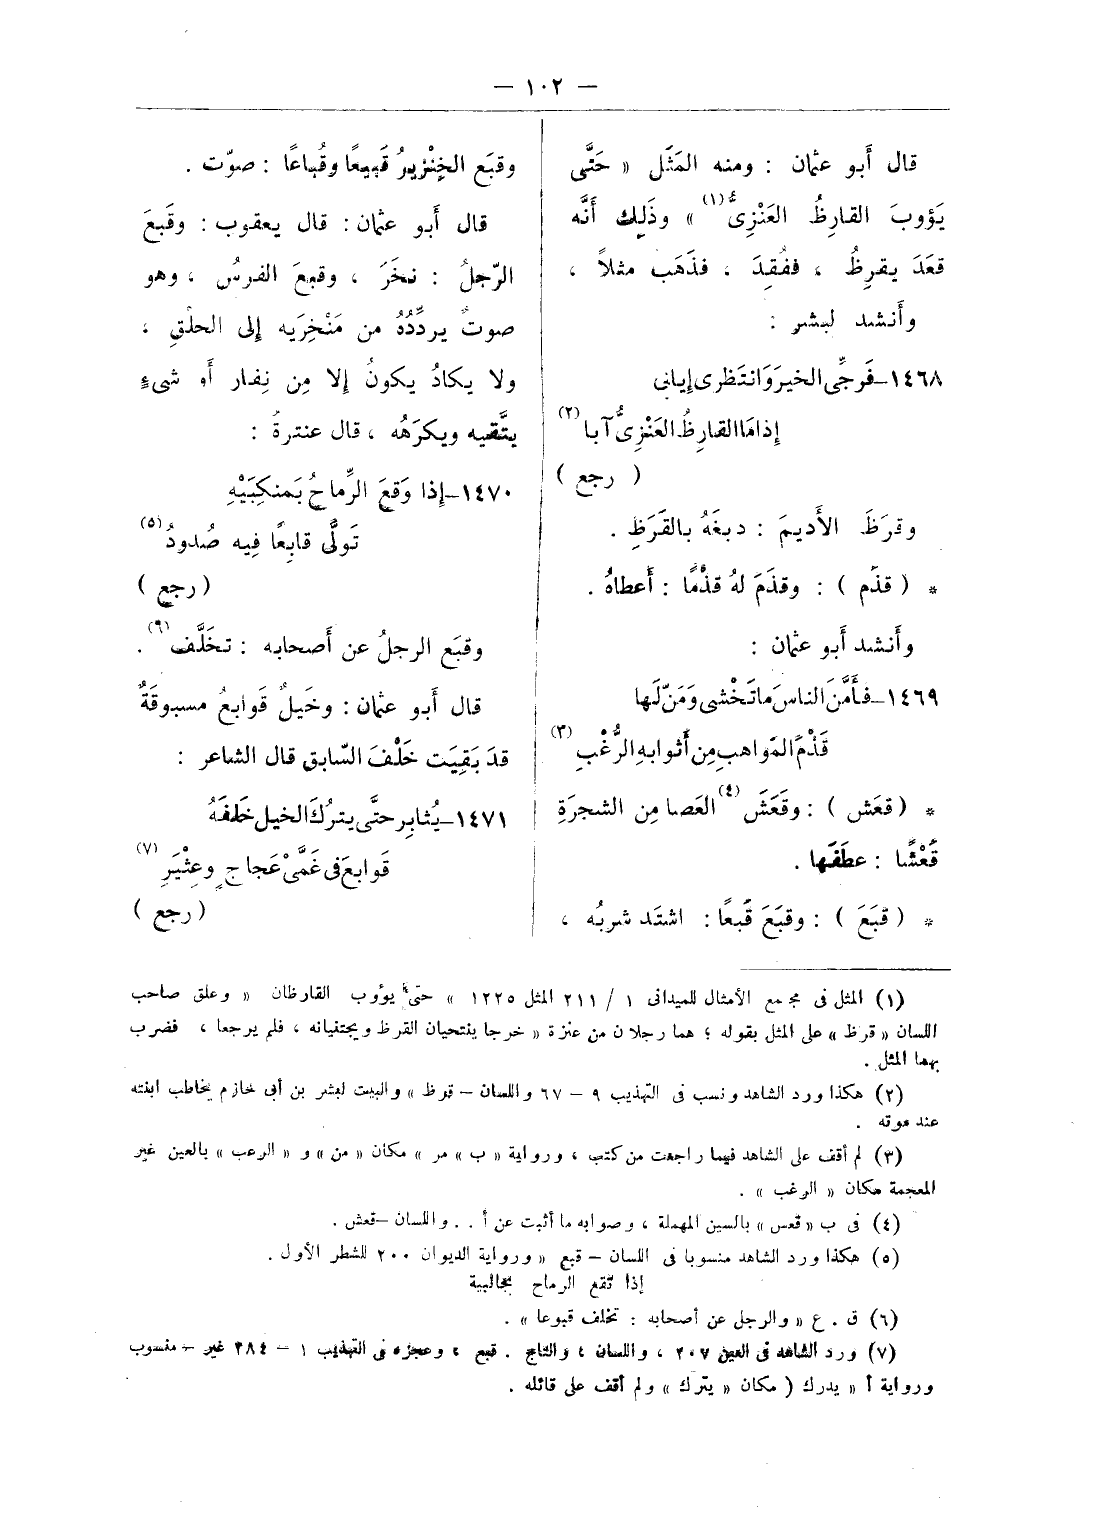 — ١٠٢ —
قال أبو عثمان : ومنه المَثَل « حَتَّى
يَؤوبَ القارظُ العَنْزِىُّ(١) » وذَلِك أَنَّه
قعَدَ يقرِظُ ، ففُقِدَ ، فذَهَب مثلاً ،
وأَنشد لبشر :
١٤٦٨–فَرجِّى الخيرَ وَانتَظرى إيابى
إذا مَا القارظُ العَنْزِىُّ آبا(٢)
( رجع )
وقرَظَ الأَديمَ : دبغَهُ بالقَرَظِ .
* ( قذَم ) : وقذَمَ لهُ قذْمًا : أَعطاهُ .
وأَنشد أَبو عثمان :
١٤٦٩–فأَمَّنَ الناسَ ماتَخْشى وَمَنّ لَها
قَذْمَ المَواهبِ مِن أَثوابهِ الرُّغْبِ(٣)
* ( قعَش ) : وقَعَشَ(٤) العَصا مِن الشجرَةِ
قَعْشًا : عطَفَها .
* ( قبَعَ ) : وقبَعَ قَبعًا : اشتَد شربُه ،
وقبَع الخِنْزيرُ قَبيعًا وقُباعًا : صوّت .
قال أَبو عثمان : قال يعقوب : وقَبعَ
الرّجلُ : نخَرَ ، وقبعَ الفرسُ ، وهو
صوتٌ يردِّدُهُ من مَنْخِرَيه إلى الحلْقِ ،
ولا يكادُ يكونُ إلا مِن نِفار أَو شىءٍ
يتَّقيه ويكرَهُه ، قال عنترةُ :
١٤٧٠–إذا وَقعَ الرِّماحُ بمَنكِبَيْهِ
تَولَّى قابِعًا فِيه صُدودُ(٥)
( رجع )
وقبَع الرجلُ عن أَصحابه : تخَلَّف(٦) .
قال أَبو عثمان : وخَيلٌ قَوابعُ مسبوقَةٌ
قدَ بَقِيَت خَلْفَ السّابق قال الشاعر :
١٤٧١–يُثابِر حتَّى يترُكَ الخيل خَلفَهُ
قَوابعَ فى غَمَّىْ عَجاجٍ وعِثْيَرِ(٧)
( رجع )
(١) المثل فى مجمع الأمثال للميدانى ١ / ٢١١ المثل ١٢٢٥ » حتى يؤوب القارظان « وعلق صاحب
اللسان « قرظ » على المثل بقوله ؛ هما رجلان من عنزة « خرجا ينتحيان القرظ ويجتنيانه ، فلم يرجعا ، فضرب
بهما المثل .
(٢) هكذا ورد الشاهد ونسب فى التهذيب ٩ – ٦٧ واللسان – قرظ » والبيت لبشر بن أبى خازم يخاطب ابنته
عند موته .
(٣) لم أقف على الشاهد فيما راجعت من كتب ، ورواية « ب » مر » مكان « من » و « الرعب » بالعين غير
المعجمة مكان « الرغب » .
(٤) فى ب « قعس » بالسين المهملة ، وصوابه ما أثبت عن أ . . واللسان –قعش .
(٥) هكذا ورد الشاهد منسوبا فى اللسان – قبع « ورواية الديوان ٢٠٠ للشطر الأول .
إذا تقع الرماح بجالبية
(٦) ق . ع « والرجل عن أصحابه : تخلف قبوعا » .
(٧) ورد الشاهد فى العين ٢٠٧ ، واللسان ، والتاج . قبع ، وعجزه فى التهذيب ١ – ٢٨٤ غير – منسوب
ورواية أ « يدرك ( مكان « يترك » ولم أقف على قائله .